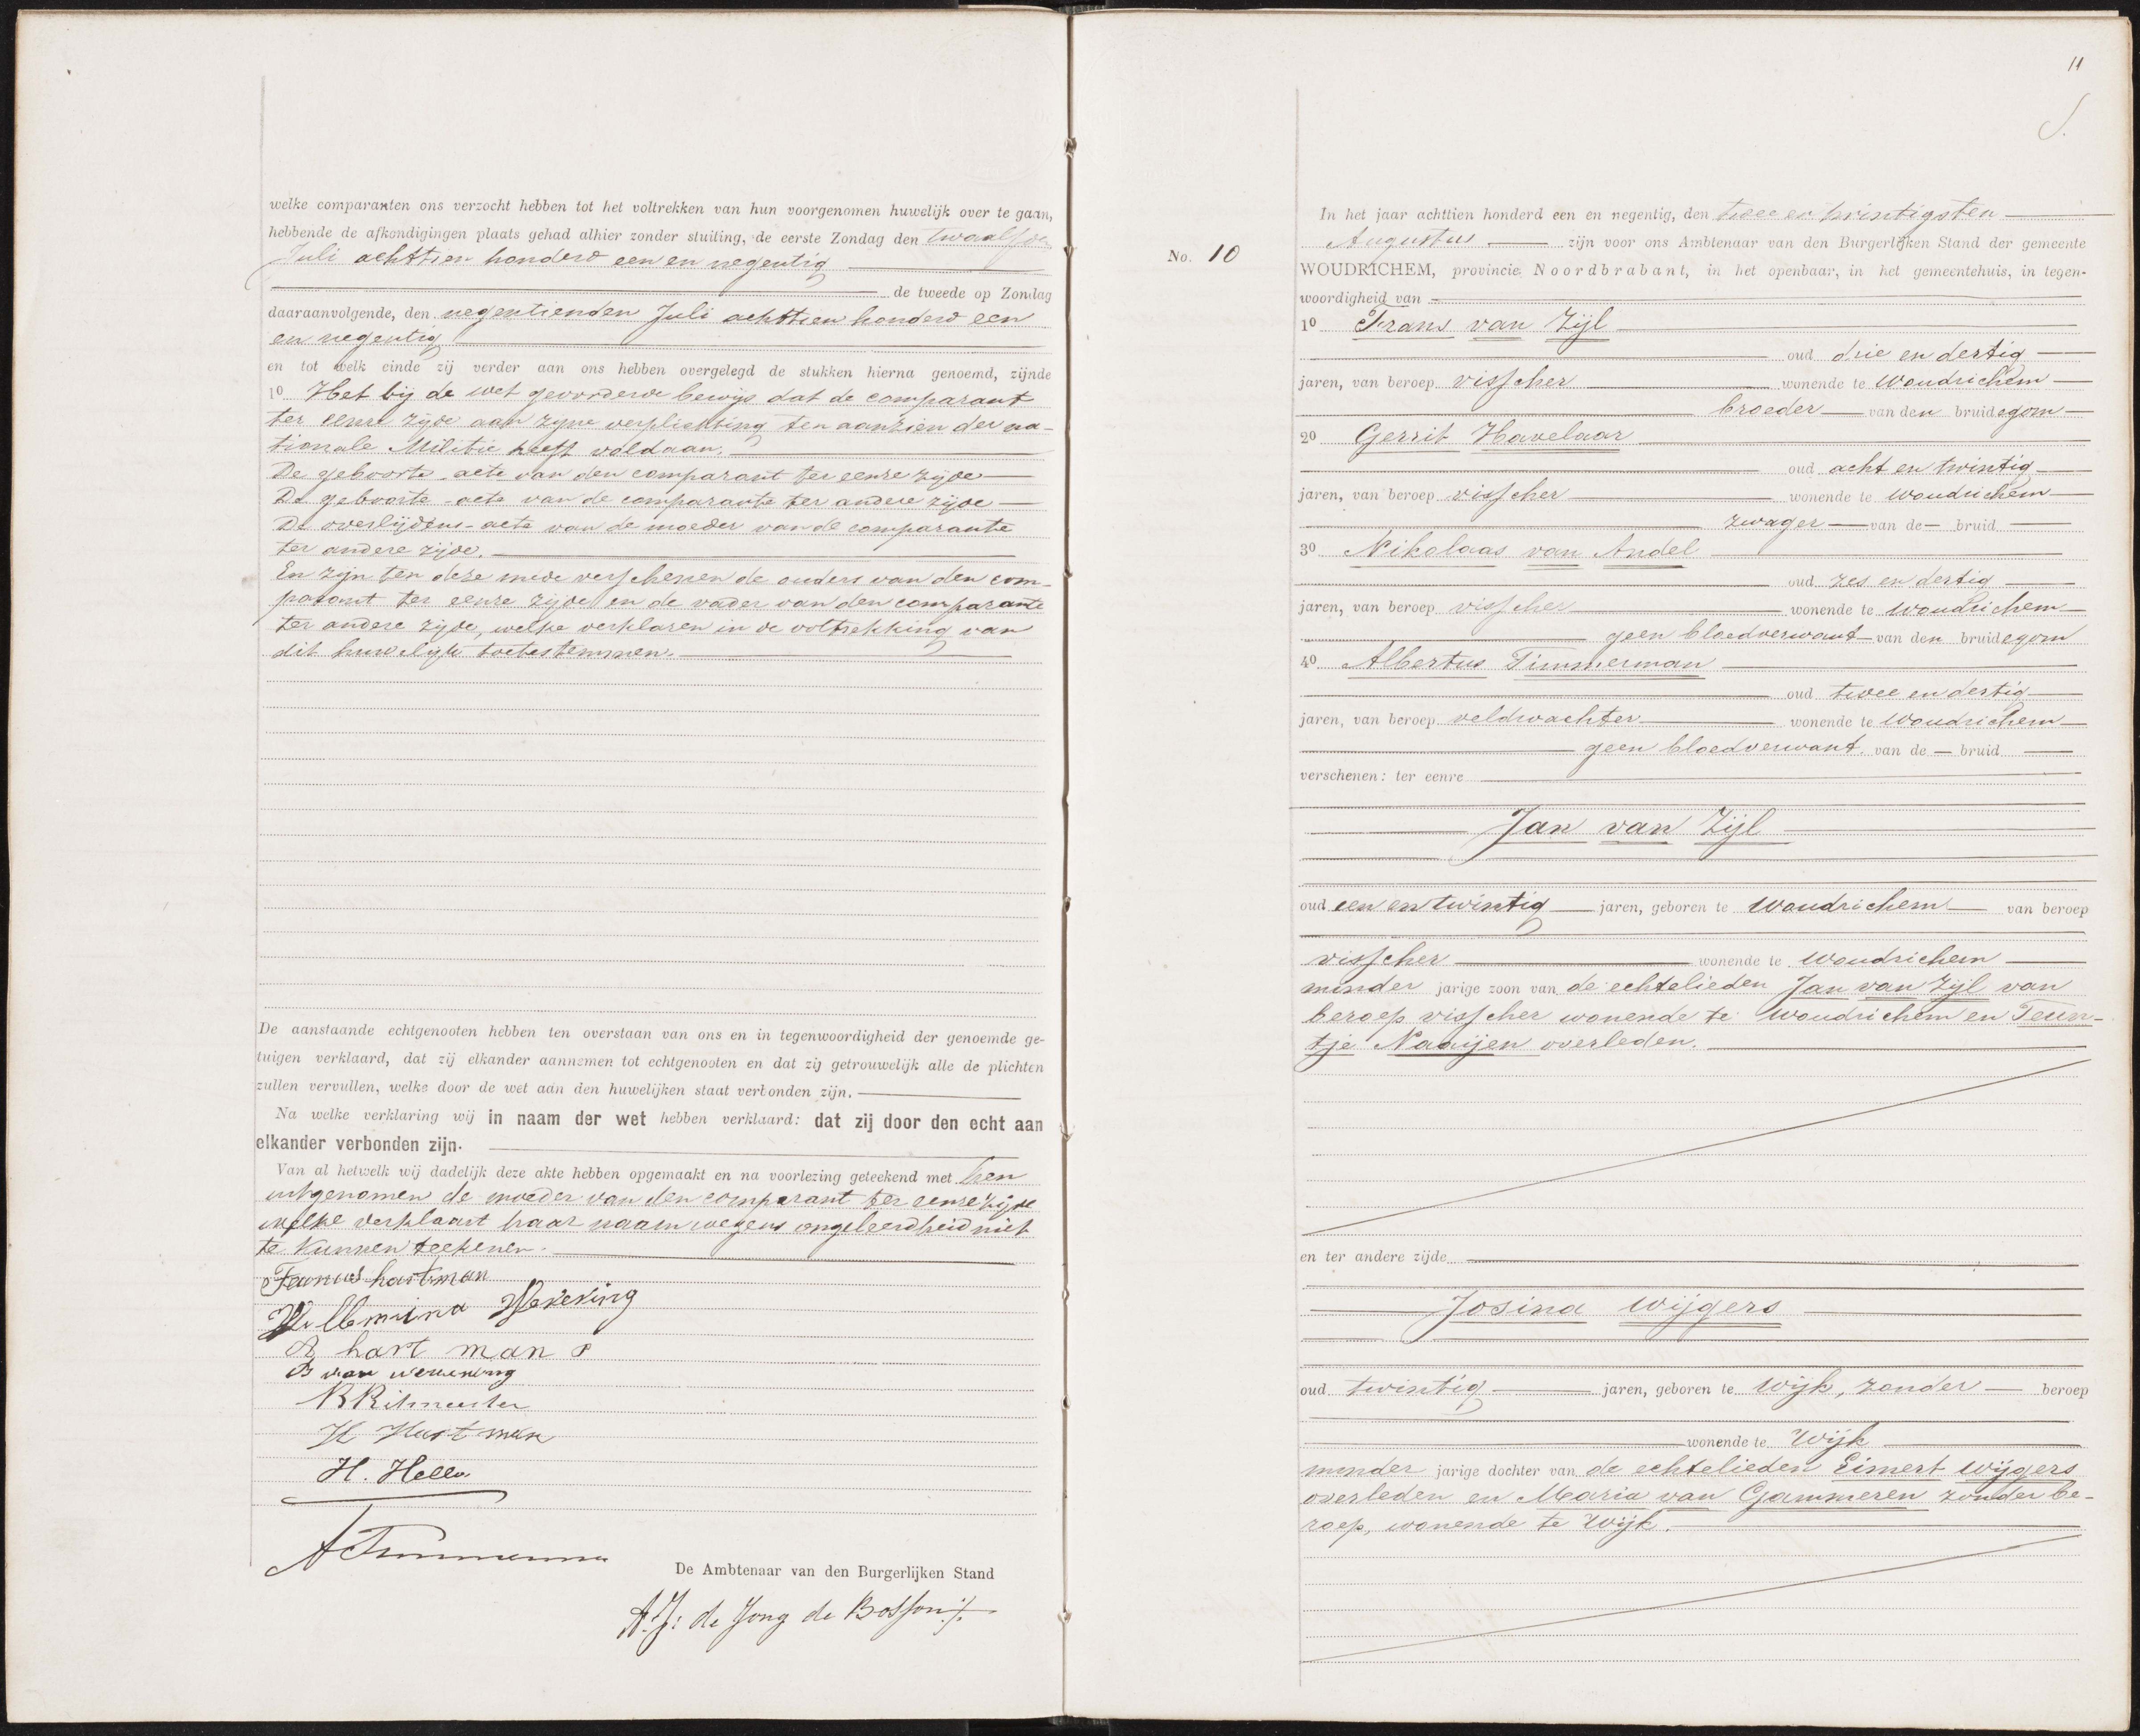 welke comparanten ons verzocht hebben tot het voltrekken van hun voorgenomen huwelijk over te gaan,
hebbende de afkondigingen plaats gehad alhier zonder stuiting, de eerste Zondag den twaalfden
Juli achttien honderd een en negentig
de tweede op Zondag
daaraanvolgende, den negentienden Juli achttien honderd een
en negentig
en tot welk einde zij verder aan ons hebben overgelegd de stukken hierna genoemd, zijnde
1o Het bij de wet gevorderde bewijs dat de comparant
ter eenre zijde aan zijne verplichting ten aanzien der na-
tionale Militie heeft voldaan.
De geboorte-acte van den comparant ter eenre zijde
De geboorte-acte van de comparante ter andere zijde
De overlijdens-acte van de moeder van de comparante
ter andere zijde.
En zijn ten deze mede verschenen de ouders van den com-
parant ter eenre zijde en de vader van den comparante
ter andere zijde, welke verklaren in de voltrekking van
dit huwelijk toetestemmen.
De aanstaande echtgenooten hebben ten overstaan van ons en in tegenwoordigheid der genoemde ge-
tuigen verklaard, dat zij elkander aannemen tot echtgenooten en dat zij getrouwelijk alle de plichten
zullen vervullen, welke door de wet aan den huwelijken staat verbonden zijn.
Na welke verklaring wij in naam der wet hebben verklaard: dat zij door den echt aan
elkander verbonden zijn.
Van al hetwelk wij dadelijk deze akte hebben opgemaakt en na voorlezing geteekend met hen
uitgenomen de moeder van den comparant ter eenre zijde
welke verklaart haar naam wegens ongeleerdheid niet
te kunnen teekenen.
Teunus hartman
Willemina
hart man
B van
R Ritmeester
H Hartman
H. Hello
A Timmerman
De Ambtenaar van den Burgerlijken Stand
A. J: de Jong de Bosson
11
No. 10
In het jaar achttien honderd een en negentig, den twee en twintigsten
Augustus zijn voor ons Ambtenaar van den Burgerlijken Stand der gemeente
WOUDRICHEM, provincie Noordbrabant, in het openbaar, in het gemeentehuis, in tegen-
woordigheid van
1o Frans van Zijl
oud drie en dertig
jaren, van beroep visscher wonende te Woudrichem
broeder van den bruidegom
2o Gerrit Havelaar
oud acht en twintig
jaren, van beroep visscher wonende te Woudrichem
zwager van de bruid
3o Nikolaas van Andel
oud zes en dertig
jaren, van beroep visscher wonende te Woudrichem
geen bloedverwant van den bruidegom
4o Albertus Timmerman
oud twee en dertig
jaren, van beroep veldwachter wonende te Woudrichem
geen bloedverwant van de bruid
verschenen: ter eenre
Jan van Zijl
oud een en twintig jaren, geboren te Woudrichem van beroep
visscher wonende te Woudrichem
minder jarige zoon van de echtelieden Jan van Zijl van
beroep visscher wonende te Woudrichem en Teun-
tje Naaijen overleden.
en ter andere zijde
Josina Wijgers
oud twintig jaren, geboren te Wijk, zonder beroep
wonende te Wijk
minder jarige dochter van de echtelieden Eimert Wijgers
overleden en Maria van Gammeren zonder be-
roep, wonende te Wijk.